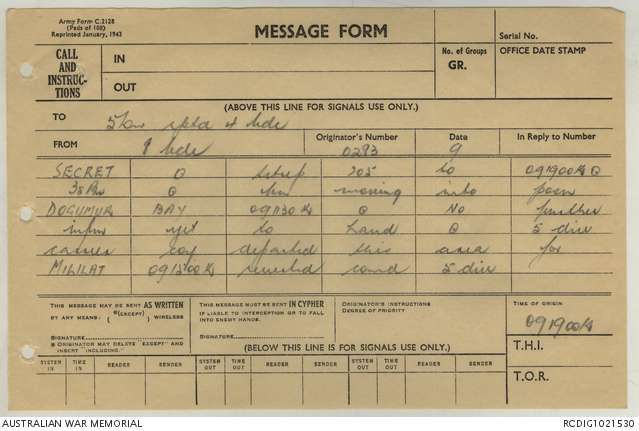 Army Form C.2128
(Pads of 100)
Reprinted January, 1943
MESSAGE FORM
Serial No.
CALL AND INSTRUC-TIONS
IN
OUT
No. of Groups
GR.
OFFICE DATE STAMP
(ABOVE THIS LINE FOR SIGNALS USE ONLY.)
TO 5 4 bde
FROM 8 bde
Originator's Number 0283
Date 9
In Reply to Number
SECRET O sitrep 205 to 091900K O
35 Bn O moving into posn
DOGUMUR BAY 091130K O No further
infm yet to hand O 5 div
carrier coy departed this area for
MILILAT 091500K reverted comd 5 div
THIS MESSAGE MAY BE SENT AS WRITTEN
BY ANY MEANS. *(EXCEPT) WIRELESS
SIGNATURE
ORIGINATOR MAY DELETE "EXCEPT" AND
INSERT "INCLUDING."
THIS MESSAGE MUST BE SENT IN CYPHER
IF LIABLE TO INTERCEPTION OR TO FALL
INTO ENEMY HANDS.
SIGNATURE
ORIGINATOR'S INSTRUCTIONS
DEGREE OF PRIORITY
TIME OF ORIGIN
091900K
T.H.I.
T.O.R.
(BELOW THIS LINE IS FOR SIGNALS USE ONLY.)
SYSTEM IN TIME IN READER SENDER SYSTEM OUT TIME OUT READER SENDER SYSTEM OUT TIME OUT READER SENDER
AUSTRALIAN WAR MEMORIAL
RCDIG1021530